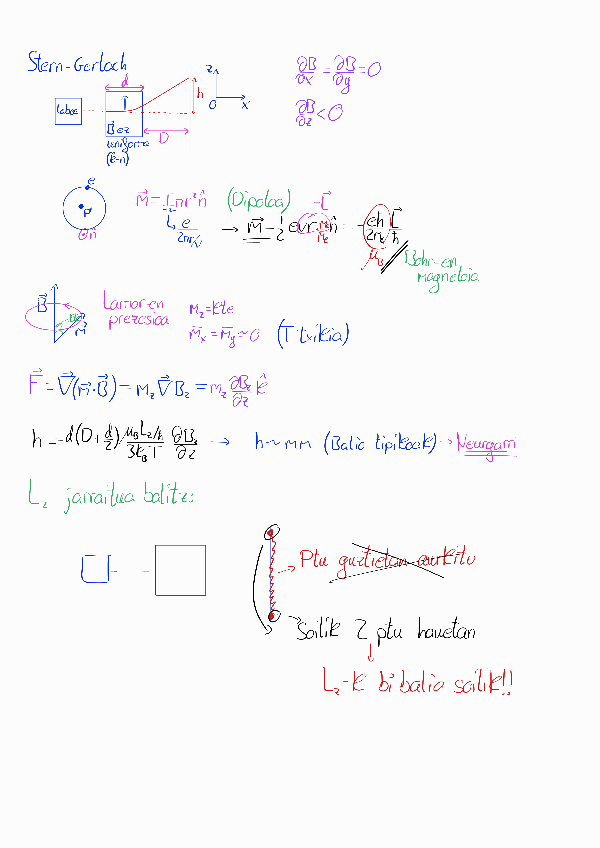 Stern-Gerlach
d
z
h
x
O
Labea
T
B ez
uniforme
(k-n)
D
∂B/∂x = ∂B/∂y = 0
∂B/∂z < 0
e
p
n̂
M⃗ = I π r² n̂ (Dipoloa)
→ M⃗ = 1/2 e v r n̂
-L⃗
μ_B
Bohr-en
magnetoia
B⃗
M⃗
Larmor-en
prezesioa
M_z = kte
M̄_x = M̄_y ≈ 0 (T txikia)
F⃗ = ∇⃗(m⃗·B⃗) = M_z ∇⃗ B_z = M_z ∂B_z/∂z k̂
h = -d(D + d/2) μ_B L_z/ħ / 3k_B T ∂B_z/∂z → h ~ mm (Balio tipikoak) → Neurgarri
L_z jarraitua balitz:
→ Ptu guztietan aurkitu
→ Soilik 2 ptu hauetan
L_z-k bi balio soilik!!